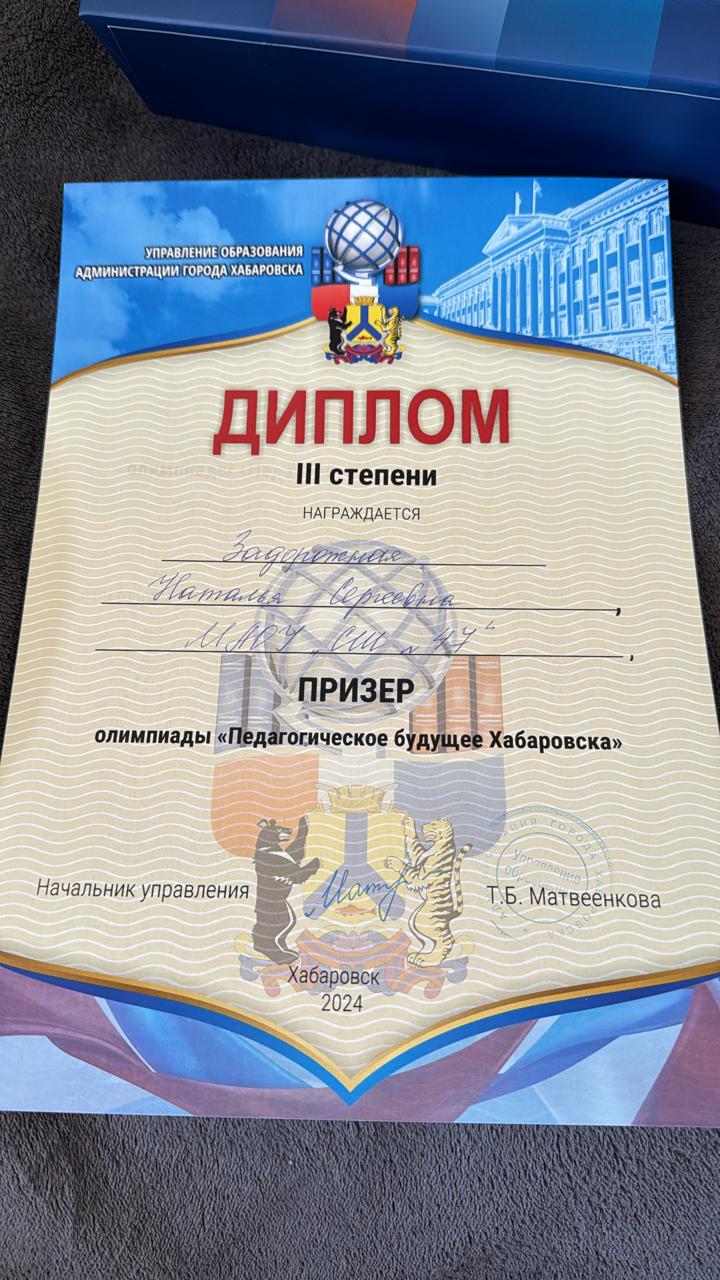 УПРАВЛЕНИЕ ОБРАЗОВАНИЯ
АДМИНИСТРАЦИИ ГОРОДА ХАБАРОВСКА
ДИПЛОМ
III степени
НАГРАЖДАЕТСЯ
Задорожная
Наталья Сергеевна,
МАОУ „СШ № 47",
ПРИЗЕР
олимпиады «Педагогическое будущее Хабаровска»
Начальник управления
Т.Б. Матвеенкова
Управление
образования
Хабаровск
2024